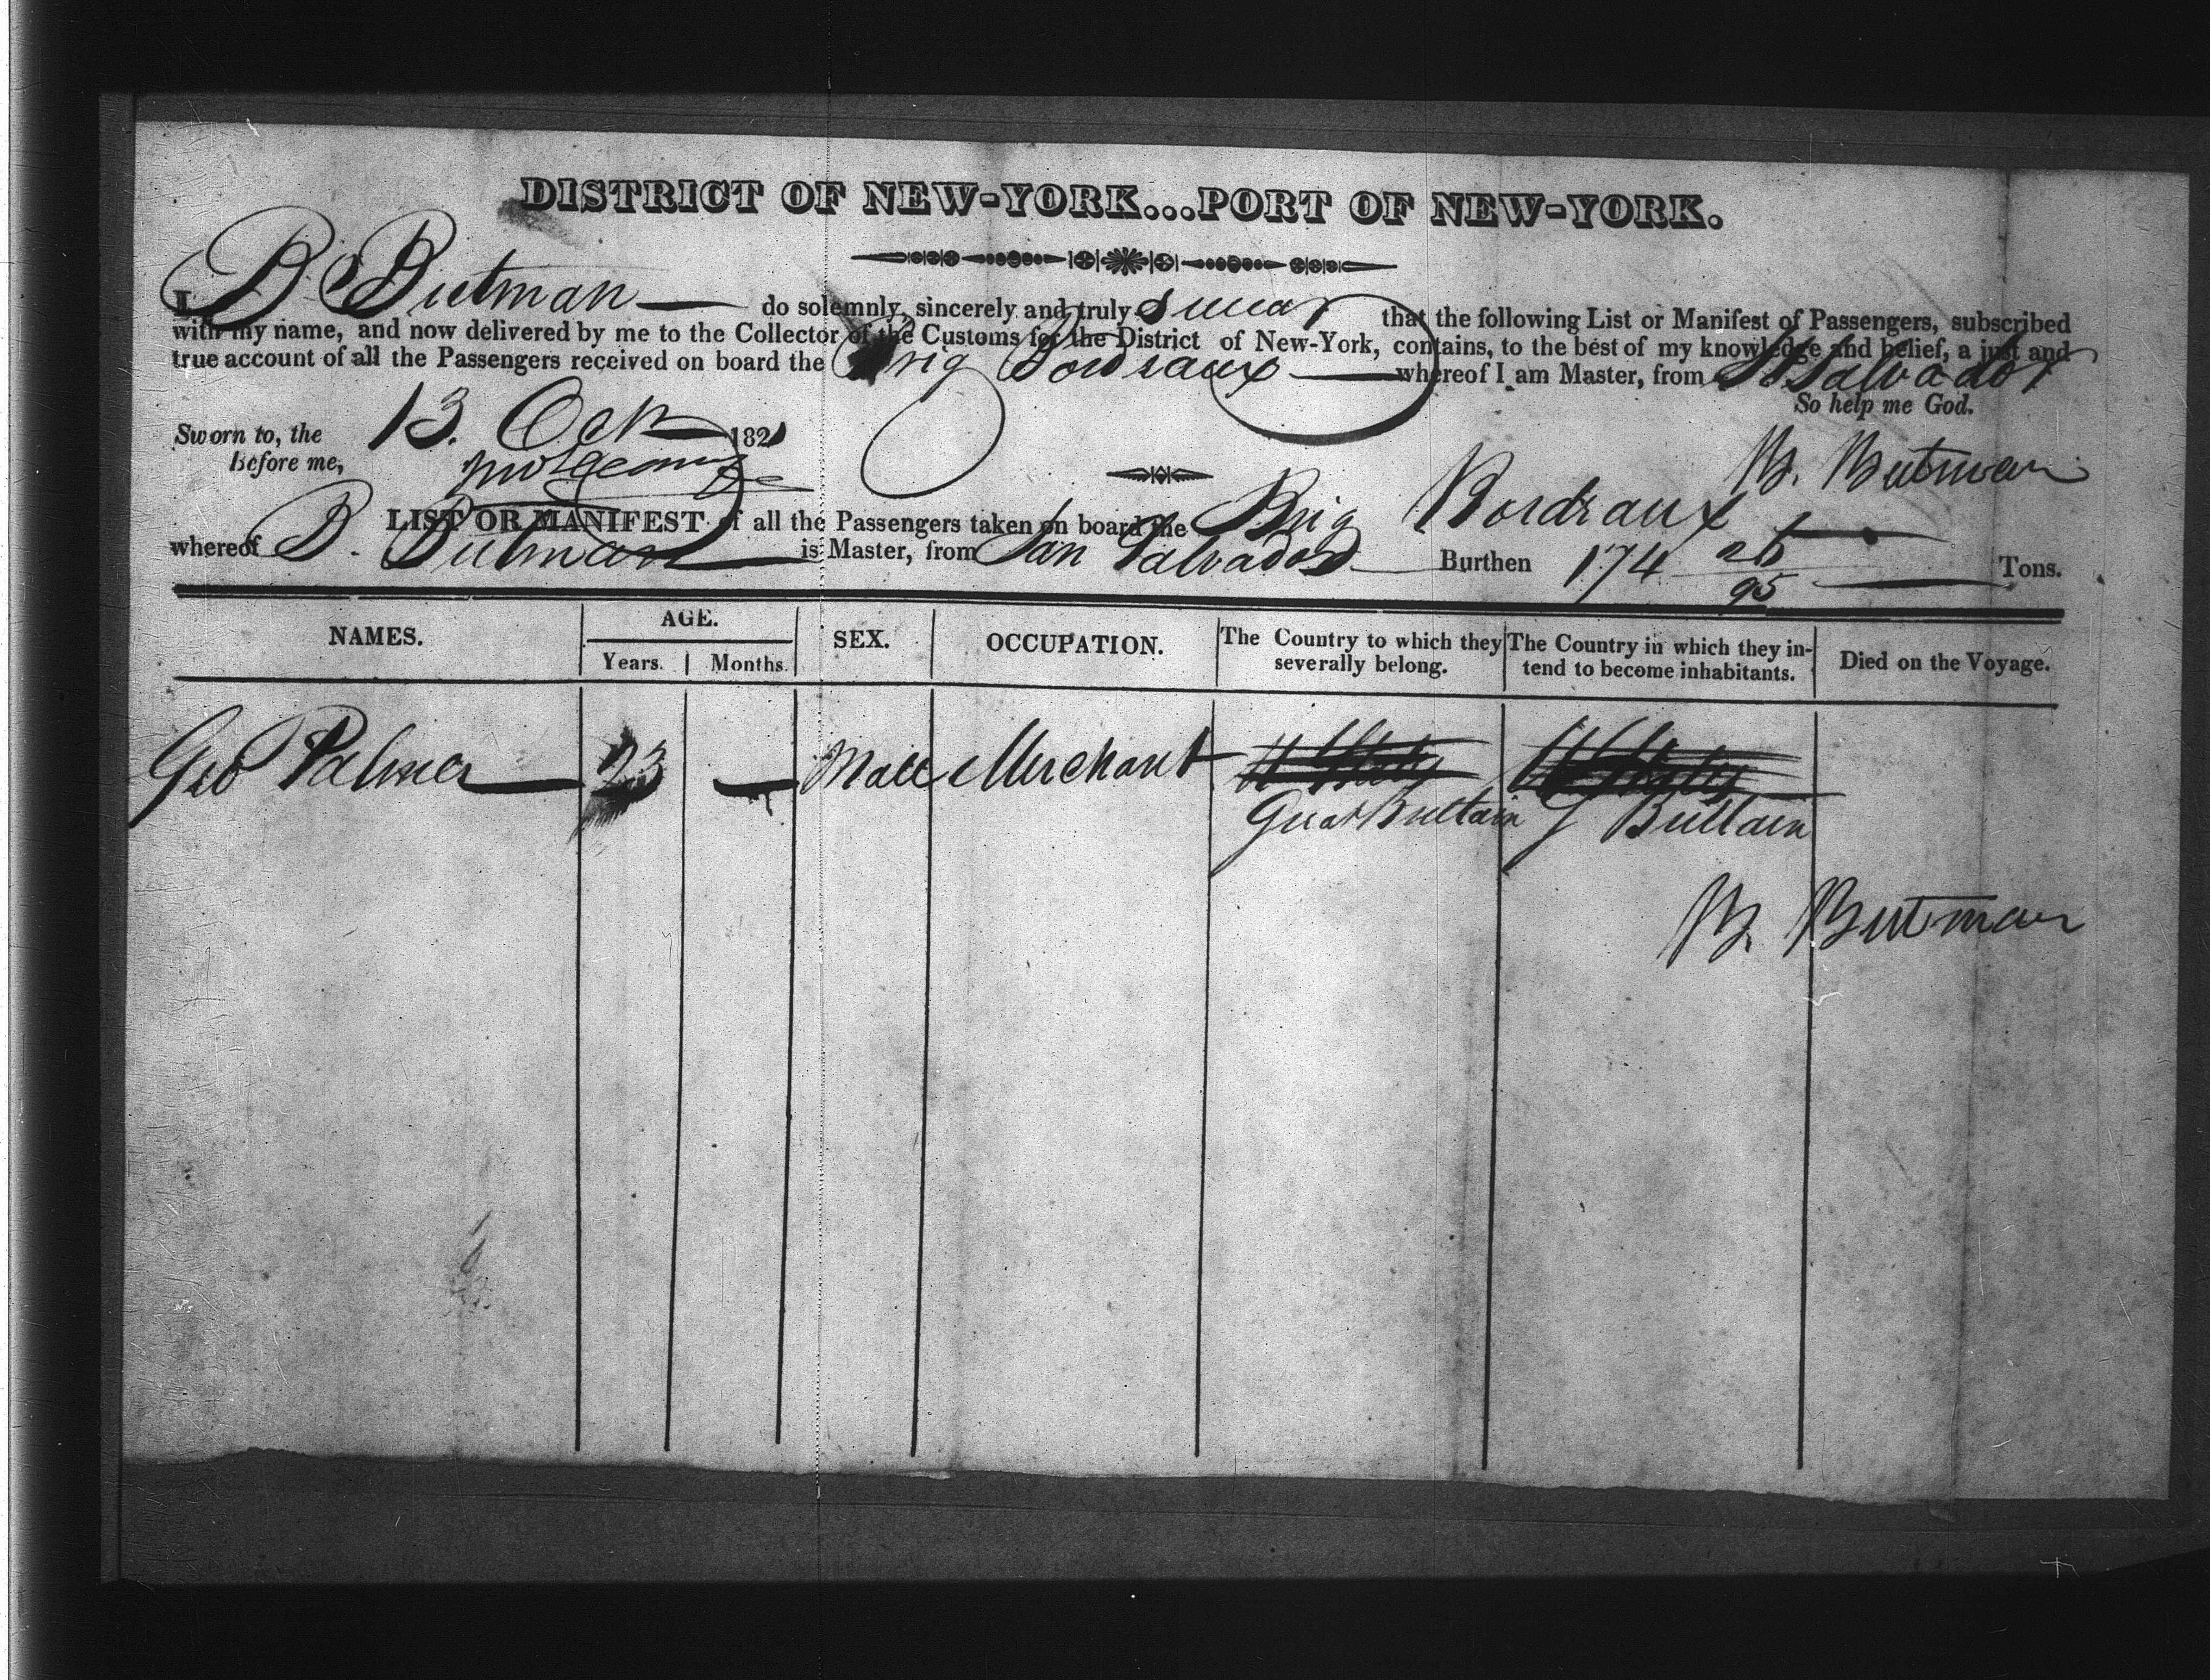 DISTRICT OF NEW-YORK...PORT OF NEW-YORK.
I, B Butman do solemnly, sincerely and truly swear that the following List or Manifest of Passengers, subscribed
with my name, and now delivered by me to the Collector of the Customs for the District of New-York, contains, to the best of my knowledge and belief, a just and
true account of all the Passengers received on board the Brig Bordeaux whereof I am Master, from St Salvador
So help me God.
Sworn to, the 13. Oct 1821
Before me,
B. Butman
LIST OR MANIFEST of all the Passengers taken on board the Brig Bordeaux
whereof B. Butman is Master, from San Salvador Burthen 174 26/95 Tons.
NAMES. AGE. Years. Months. SEX. OCCUPATION. The Country to which they severally belong. The Country in which they intend to become inhabitants. Died on the Voyage.
Geo Palmer 23 — Male Merchant U States U States
Great Brittain G Brittain
B. Butman